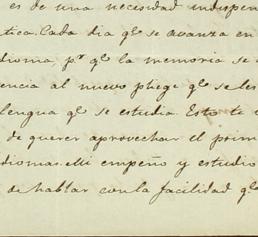 es de una necesidad indispen
tica. Cada dia qe. se avanza en
dioma, pr. qe. la memoria se a
encia al nuevo pliege qe. se les
lengua qe. se estudia. Esto te
de querer aprovechar el prim
diomas. Mi empeño y estudio
de hablar con la facilidad qe.